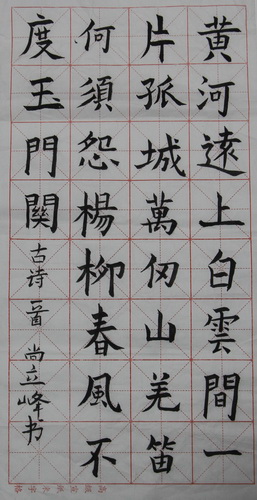 黄河遠上白雲間一
片孤城萬仞山羌笛
何須怨楊柳春風不
度玉門關
古诗一首 尚立峰书